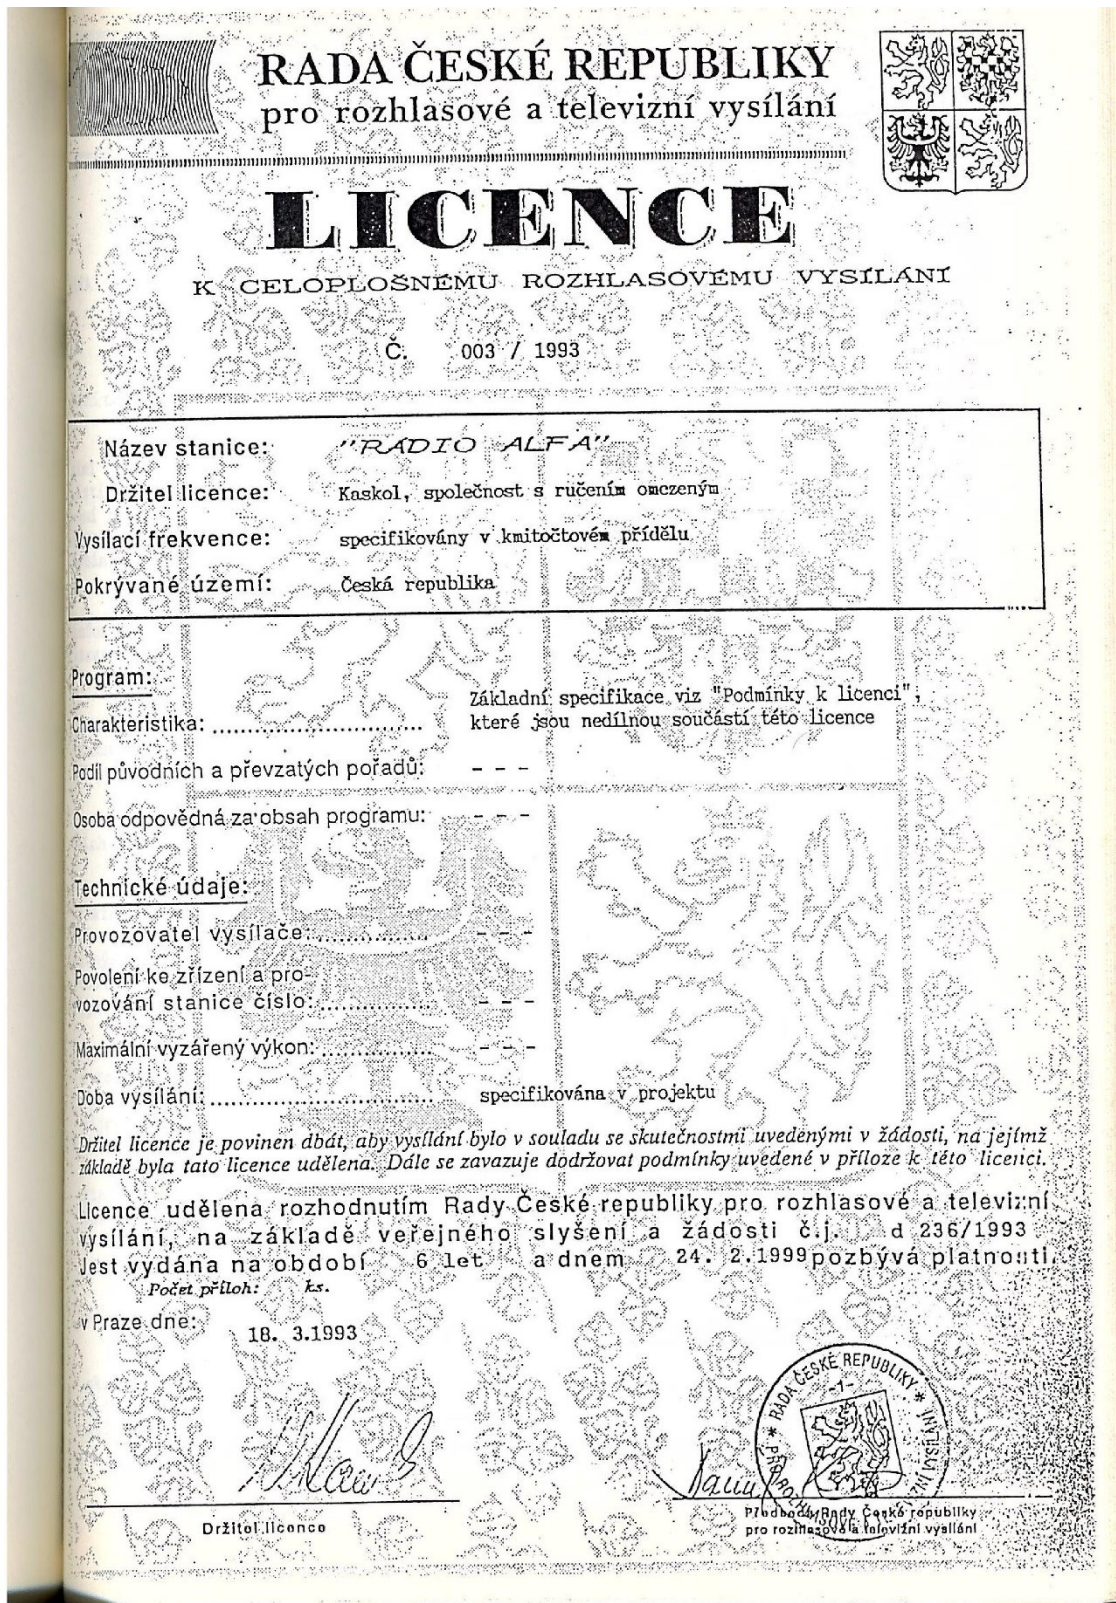 RADA ČESKÉ REPUBLIKY
pro rozhlasové a televizní vysílání
LICENCE
K CELOPLOŠNÉMU ROZHLASOVÉMU VYSÍLÁNÍ
Č. 003 / 1993
Název stanice: "RÁDIO ALFA"
Držitel licence: Kaskol, společnost s ručením omczeným
Vysílací frekvence: specifikovány v kmitočtovém přídělu
Pokrývané území: Česká republika
Program:
Základní specifikace viz "Podmínky k licenci",
Charakteristika: .............................. které jsou nedílnou součástí této licence
Podíl původních a převzatých pořadů: - - -
Osoba odpovědná za obsah programu: - - -
Technické údaje:
Provozovatel vysílače: ................ - - -
Povolení ke zřízení a pro-
vozování stanice číslo: ................ - - -
Maximální vyzářený výkon: ................ - - -
Doba vysílání: ................................ specifikována v projektu
Držitel licence je povinen dbát, aby vysílání bylo v souladu se skutečnostmi uvedenými v žádosti, na jejímž
základě byla tato licence udělena. Dále se zavazuje dodržovat podmínky uvedené v příloze k této licenci.
Licence udělena rozhodnutím Rady České republiky pro rozhlasové a televizní
vysílání, na základě veřejného slyšení a žádosti č.j. d 236/1993
Jest vydána na období 6 let a dnem 24. 2.1999 pozbývá platnosti.
Počet příloh: ks.
v Praze dne: 18. 3.1993
* RADA ČESKÉ REPUBLIKY *
-1-
Držitel licence
Předseda Rady České republiky
pro rozhlasové a televizní vysílání